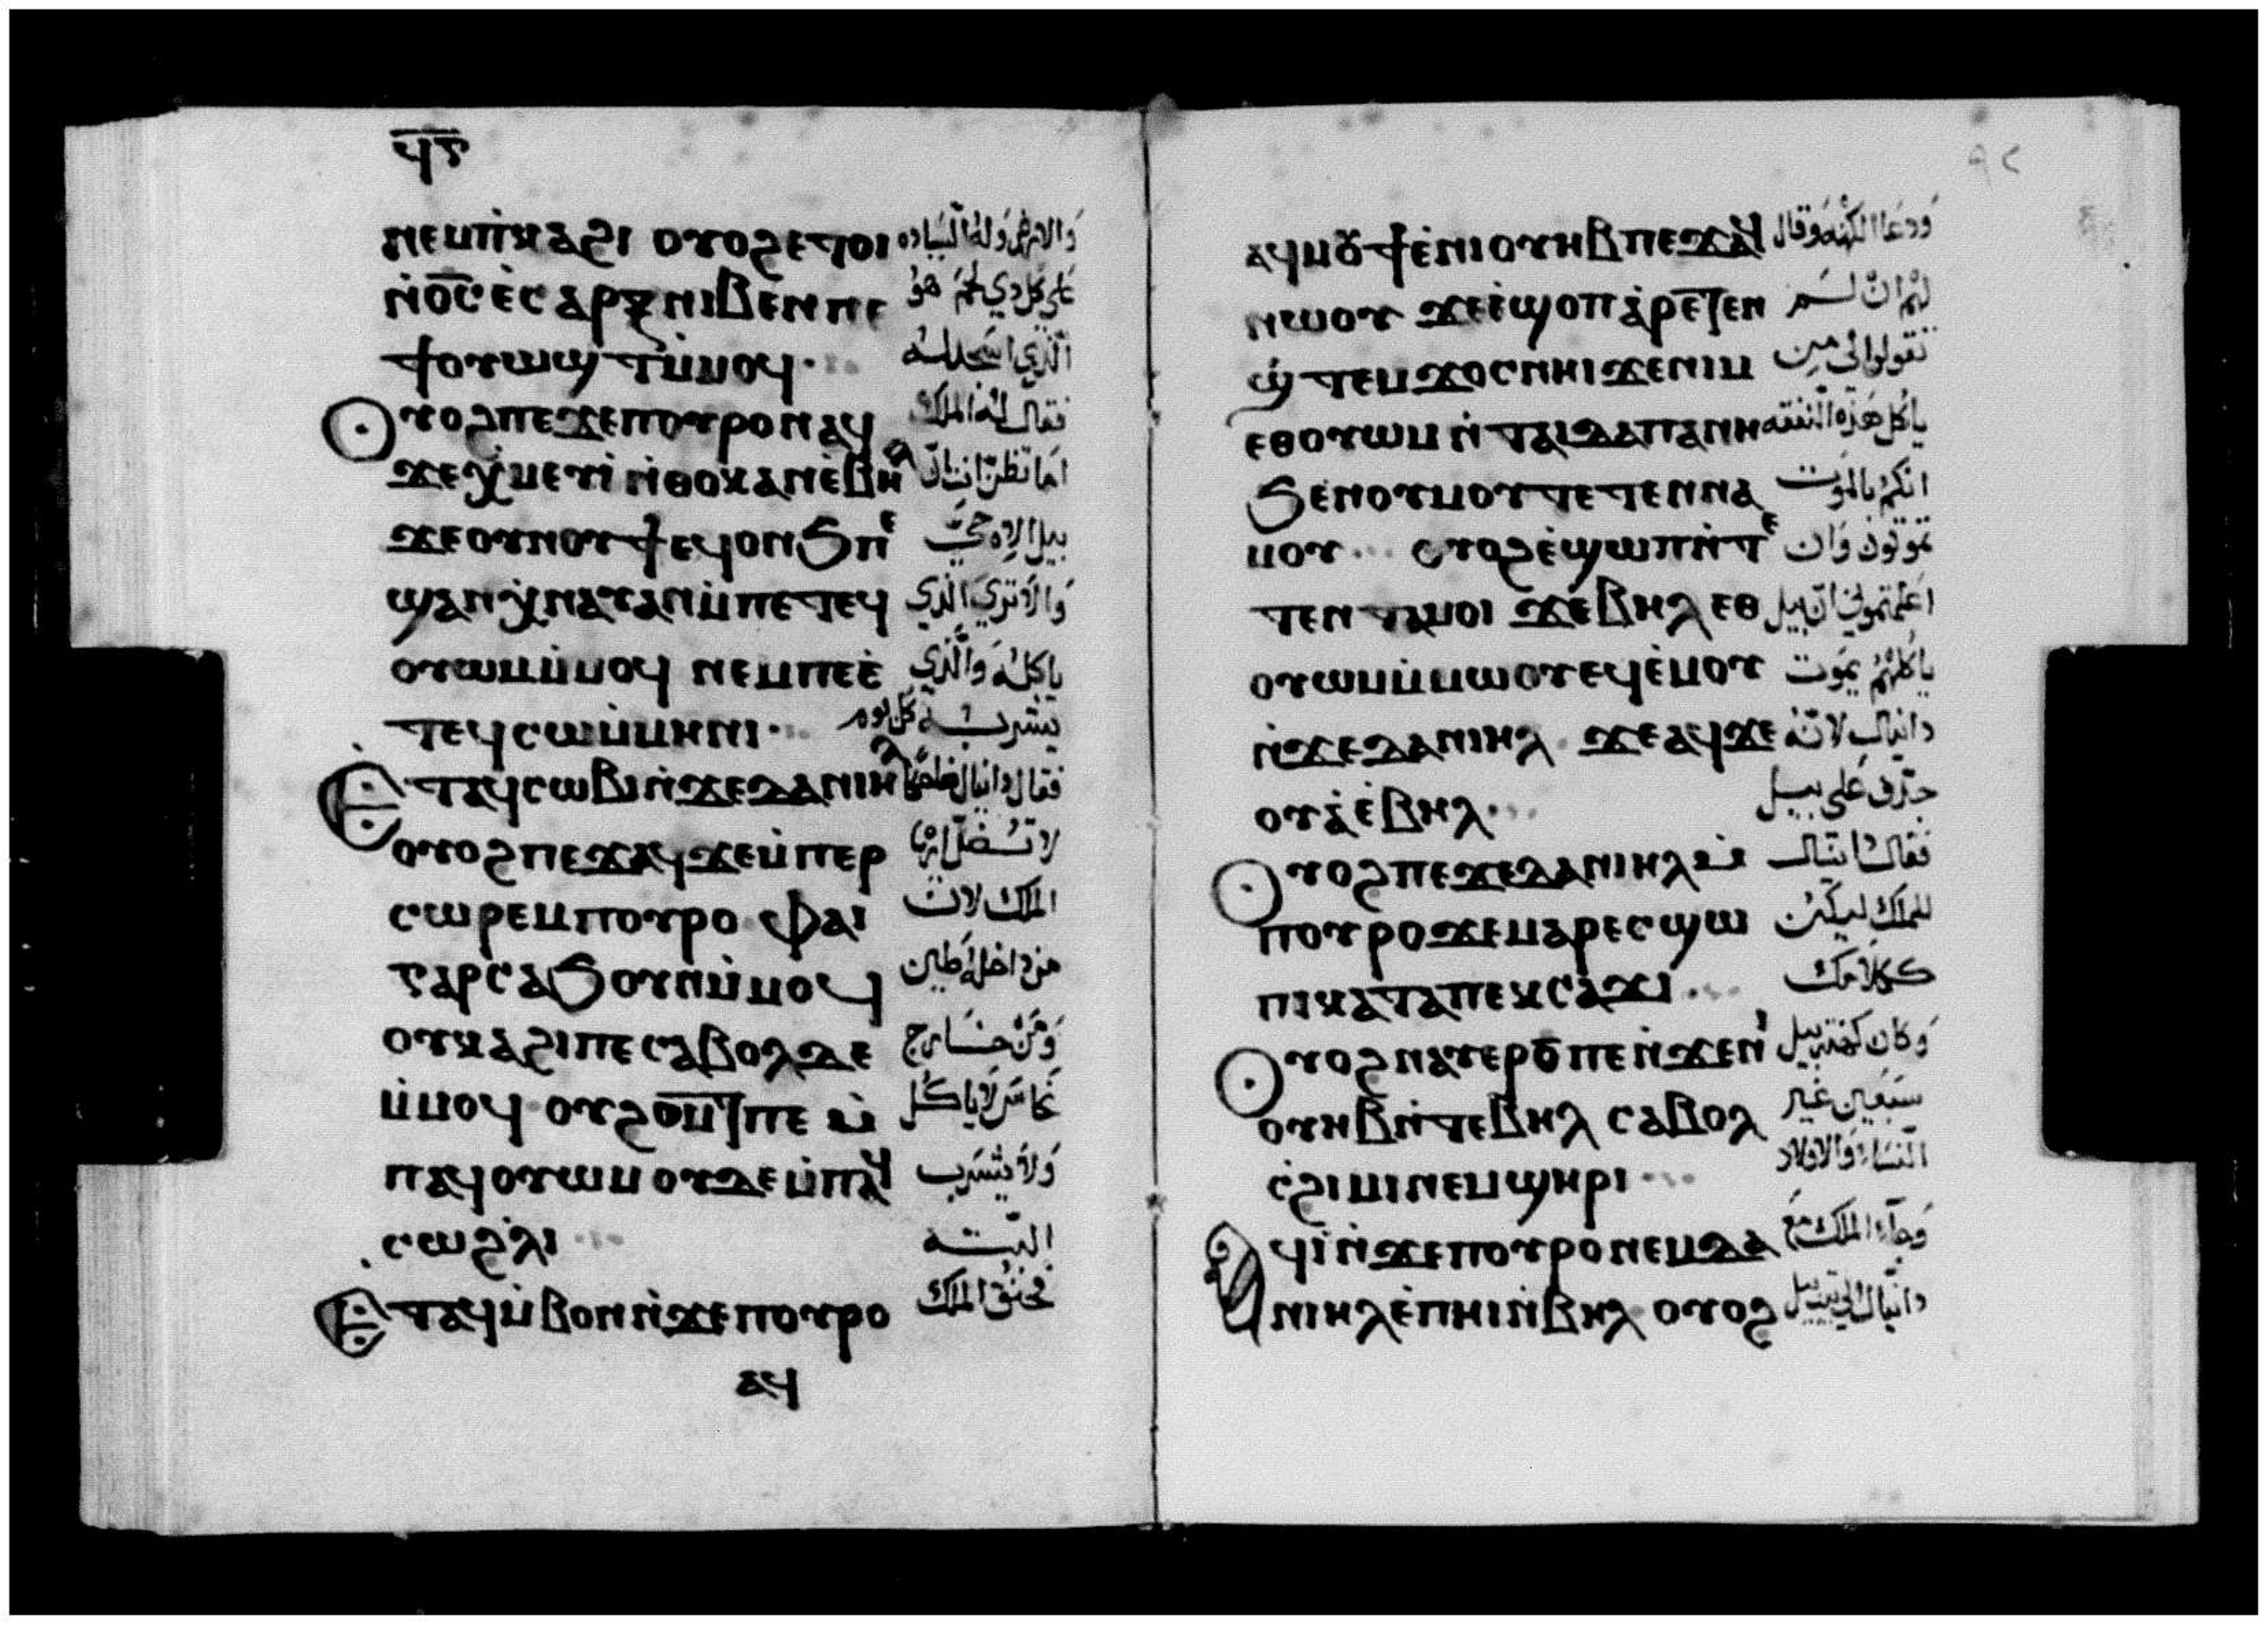 ϥ̅ⲋ̅
ⲛⲉⲙⲡ̀ⲕⲁϩⲓ ⲟⲩⲟϩⲉⲧⲟⲓ
ⲛ̀ⲟ̅ⲥ̅ⲉ̀ⲥⲁⲣⲝⲛⲓⲃⲉⲛ ⲡⲉ
ϯⲟⲩⲱϣⲧⲙ̀ⲙⲟϥ
فقال له الملك
ⲟⲩⲟϩⲡⲉϫⲉⲡⲟⲩⲣⲟⲛⲁϥ
ϫⲉⲭ̀ⲙⲉⲩⲓ̀ ⲛ̀ⲑⲟⲕⲁⲛⲉ̀ⲃⲏⲗ
ϫⲉⲟⲩⲛⲟⲩϯⲉϥⲟⲛϧⲡⲉ
ϣⲁⲛⲭ̀ⲛⲁⲩⲁⲛⲙ̀ⲡⲉⲧⲉϥ
والا تري الذي
ⲟⲩⲱⲙⲙ̀ⲙⲟϥ ⲛⲉⲙⲡⲉⲉ̀
ياكله والذي
ⲧⲉϥⲥⲱⲙ̀ⲙⲏⲛⲓ
يشربه كل يوم
ⲉⲧⲁϥⲥⲱⲃⲓⲛ̀ϫⲉⲇⲁⲛⲓⲏⲗ
ⲟⲩⲟϩⲡⲉϫⲁϥϫⲉⲙ̀ⲡⲉⲣ
ⲥⲱⲣⲉⲙⲡⲟⲩⲣⲟ ⲫⲁⲓ
الملك لان
ⲅⲁⲣⲥⲁϧⲟⲩⲛⲙ̀ⲙⲟϥ
من داخله طين
ⲟⲩⲕⲁϩⲓⲡⲉ ⲥⲁⲃⲟⲗⲇⲉ
ومن خارج
ⲙ̀ⲙⲟϥ ⲟⲩϩⲟⲙ̅ⲧⲡⲉ ⲙ̀
نحاس لا ياكل
ⲡⲁϥⲟⲩⲱⲙ ⲟⲩⲇⲉⲙ̀ⲡⲁϥ
ولا يشرب
ⲥⲱϩ̀ⲗⲓ
البته
ⲉⲧⲁϥⲙ̀ⲃⲟⲛⲛ̀ϫⲉⲡⲟⲩⲣⲟ
فحنق الملك
ⲁϥ
٩٦
ⲁϥⲙⲟⲩϯⲉ̀ⲛⲓⲟⲩⲏⲃ ⲡⲉϫⲁϥ
ودعا الكهنه وقال
ⲛⲱⲟⲩ ϫⲉⲉ̀ϣⲟⲡⲁ̀ⲣⲉⲧⲉⲛ
لهم ان لم
ϣ̀ⲧⲉⲙϫⲟⲥⲛⲏⲓϫⲉⲛⲓⲙ
تقولوا لي من
ⲉⲑⲟⲩⲱⲙ ⲛ̀ⲧⲁⲓⲇⲁⲡⲁⲛⲏ
ياكل هذه النفقه
ϧⲉⲛⲟⲩⲙⲟⲩⲧⲉⲧⲉⲛⲛⲁ
انكم بالموت
ⲙⲟⲩ ⲟⲩⲟϩⲉ̀ϣⲱⲡⲛ̀ⲧⲉ
تموتون وان
ⲧⲉⲛⲧⲁⲙⲟⲓ ϫⲉⲃⲏⲗ ⲉⲑ
اعلمتموني ان بيل
ⲟⲩⲱⲙⲙ̀ⲙⲱⲟⲩⲉϥⲉ̀ⲙⲟⲩ
ياكلهم يموت
ⲛ̀ϫⲉⲇⲁⲛⲓⲏⲗ ϫⲉⲁϥϫⲉ
دانيال لانه
ⲟⲩⲁ̀ⲉ̀ⲃⲏⲗ
جدف علي بيل
ⲟⲩⲟϩⲡⲉϫⲉⲇⲁⲛⲓⲏⲗⲙ̀
فقال دانيال
ⲡⲟⲩⲣⲟϫⲉⲙⲁⲣⲉⲥϣⲱ
للملك ليكن
ⲡⲓⲕⲁⲧⲁⲡⲉⲕⲥⲁϫⲓ
ككلامك
ⲟⲩⲟϩⲛⲁⲩⲉⲣⲟ̅ⲡⲉⲛ̀ϫⲉⲛⲓ
وكان كهنه بيل
ⲟⲩⲏⲃⲛ̀ⲧⲉⲃⲏⲗ ⲥⲁⲃⲟⲗ
سبعين غير
ⲥ̀ϩⲓⲙⲓⲛⲉⲙϣⲏⲣⲓ
النساء والاولاد
ⲁϥⲓ̀ⲛ̀ϫⲉⲡⲟⲩⲣⲟⲛⲉⲙⲇⲁ
وجاء الملك مع
ⲛⲓⲏⲗⲉ̀ⲡⲏⲓⲛ̀ⲃⲏⲗ ⲟⲩⲟϩ